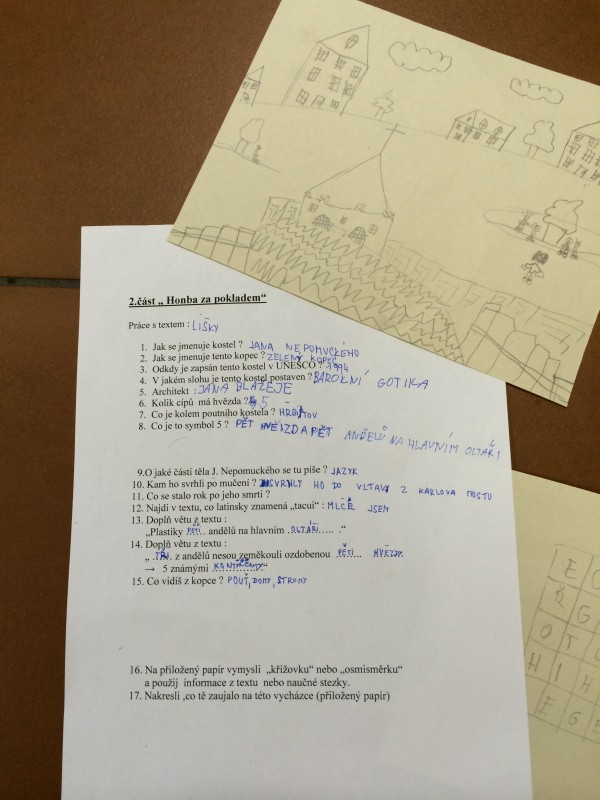 2.část „ Honba za pokladem“
Práce s textem : LIŠKY
1. Jak se jmenuje kostel ? JANA NEPOMUCKÉHO
2. Jak se jmenuje tento kopec ? ZELENÝ KOPEC
3. Odkdy je zapsán tento kostel v UNESCO ? 1994
4. V jakém slohu je tento kostel postaven ? BAROKNÍ GOTIKA
5. Architekt : JANA BLAŽEJE
6. Kolik cípů má hvězda ? 5 -
7. Co je kolem poutního kostela ? HŘBITOV
8. Co je to symbol 5 ? PĚT HVĚZD A PĚT ANDĚLŮ NA HLAVNÍM OLTÁŘI
9.O jaké části těla J. Nepomuckého se tu píše ? JAZYK
10. Kam ho svrhli po mučení ? SVRHLY HO DO VLTAVY Z KARLOVA MOSTU
11. Co se stalo rok po jeho smrti ?
12. Najdi v textu, co latinsky znamená „tacui“ : MLČEL JSEM
13. Doplň větu z textu :
„Plastiky PĚTI.. andělů na hlavním ..OLTÁŘI..... .“
14. Doplň větu z textu :
„ .TŘI. z andělů nesou zeměkouli ozdobenou ..PĚTI.... HVĚZDY.
→ 5 známými KONTINENTY“
15. Co vidíš z kopce ? POUŤ, DOMY, STROMY
16. Na přiložený papír vymysli „křížovku“ nebo „osmisměrku“
a použij informace z textu nebo naučné stezky.
17. Nakresli ,co tě zaujalo na této vycházce (přiložený papír)
E O
Ř G
O T
H I H
E G E